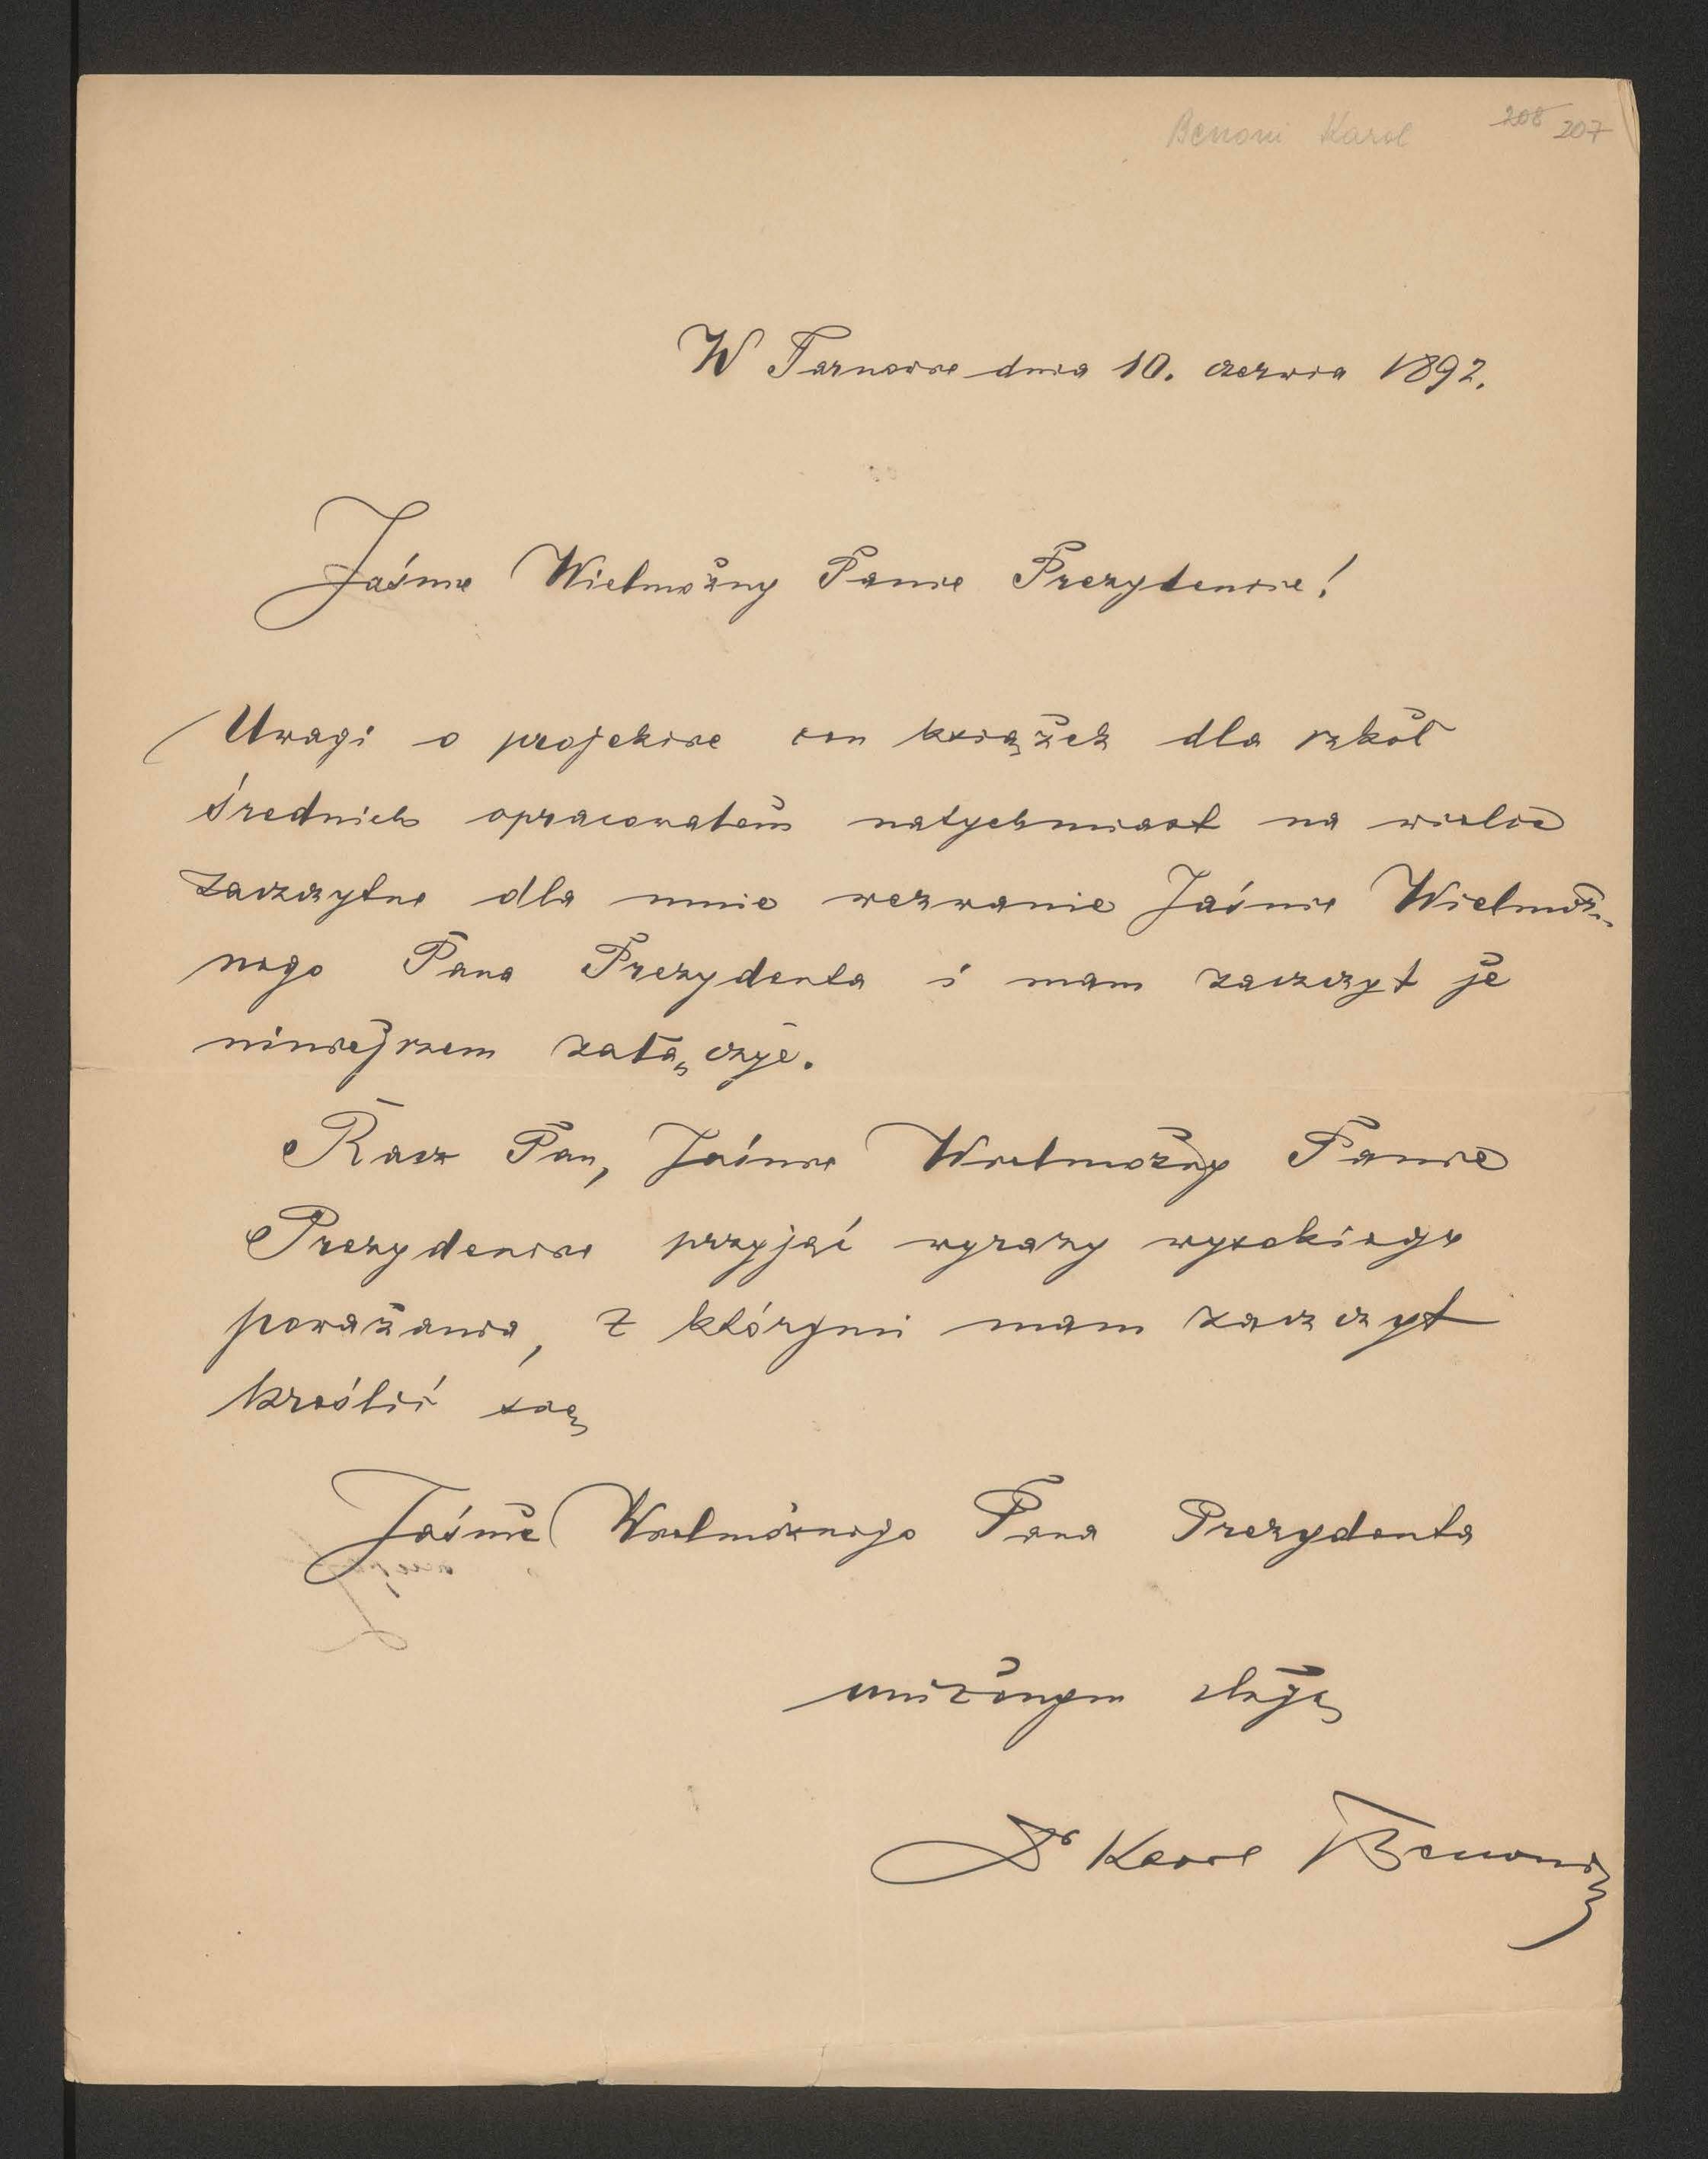 Benoni Karol 208 207
W Tarnowie dnia 10. czerwca 1892.
Jaśnie Wielmożny Panie Prezydencie!
Uwagi o projekcie cen książek dla szkół
średnich opracowałem natychmiast na wielce
zaszczytne dla mnie wezwanie Jaśnie Wielmoż-
nego Pana Prezydenta i mam zaszczyt je
niniejszem załączyć.
Racz Pan, Jaśnie Wielmożny Panie
Prezydencie przyjąć wyrazy wysokiego
poważania, z którymi mam zaszczyt
kreślić się
Jaśnie Wielmożnego Pana Prezydenta
uniżonym sługą
Dr Karol Benoni